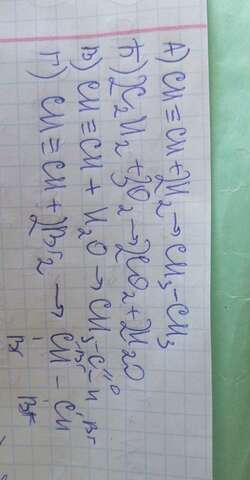 А) CH≡CH+2H2→CH3-CH3
Б) 2C2H2+3O2→2CO2+2H2O
В) CH≡CH+H2O→CH3-C=O
H
Г) CH≡CH+2Br2→CH-CH
Br Br
Br Br